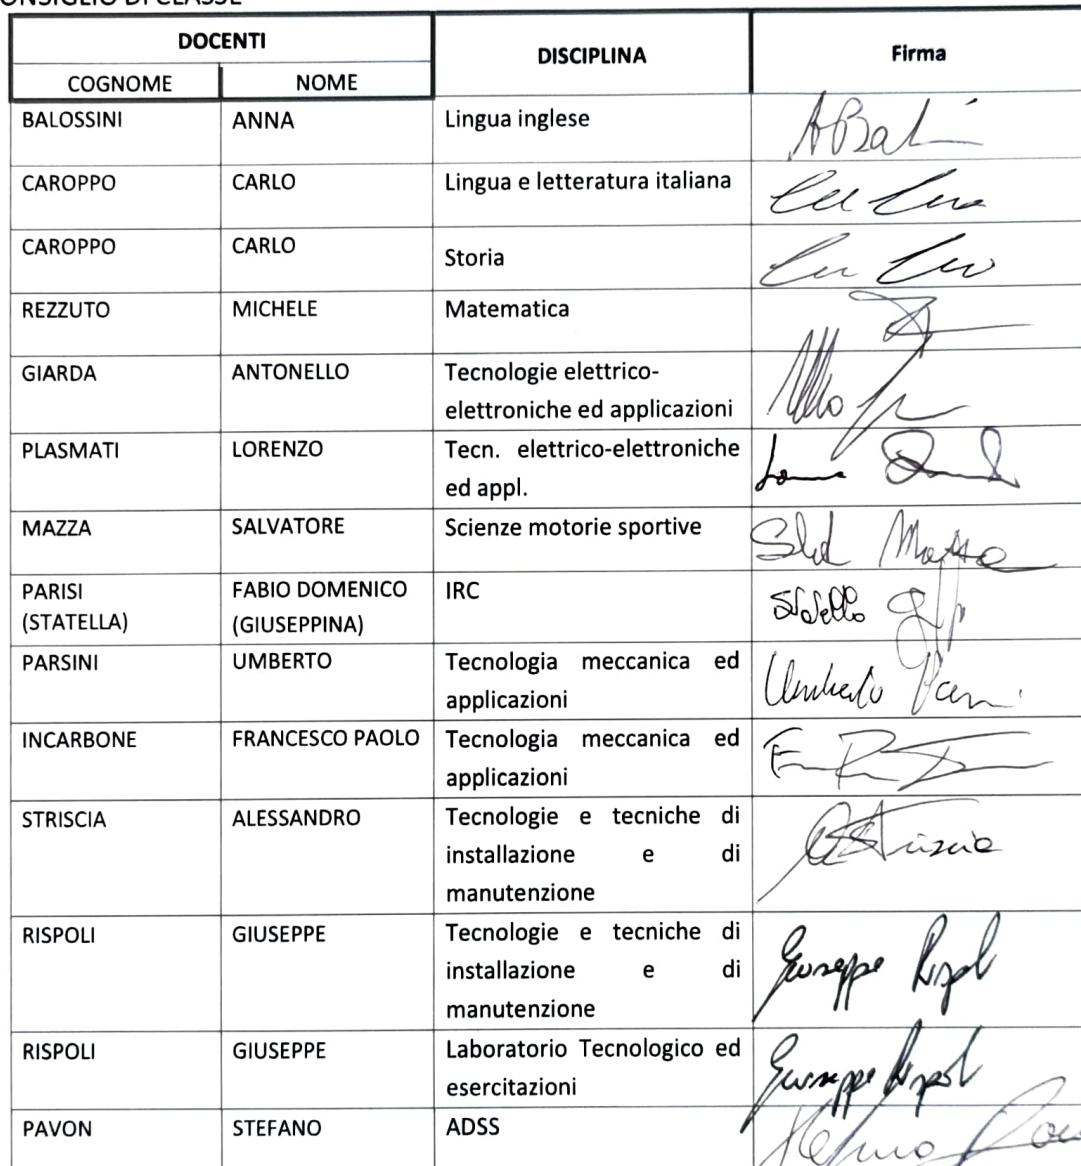 ONSIGLIO DI CLASSE
DOCENTI DISCIPLINA Firma
COGNOME NOME
BALOSSINI ANNA Lingua inglese
CAROPPO CARLO Lingua e letteratura italiana
CAROPPO CARLO Storia
REZZUTO MICHELE Matematica
GIARDA ANTONELLO Tecnologie elettrico-
elettroniche ed applicazioni
PLASMATI LORENZO Tecn. elettrico-elettroniche
ed appl.
MAZZA SALVATORE Scienze motorie sportive
PARISI FABIO DOMENICO IRC
(STATELLA) (GIUSEPPINA)
PARSINI UMBERTO Tecnologia meccanica ed
applicazioni Umberto
INCARBONE FRANCESCO PAOLO Tecnologia meccanica ed
applicazioni
STRISCIA ALESSANDRO Tecnologie e tecniche di
installazione e di
manutenzione
RISPOLI GIUSEPPE Tecnologie e tecniche di
installazione e di Giuseppe
manutenzione
RISPOLI GIUSEPPE Laboratorio Tecnologico ed
esercitazioni Giuseppe
PAVON STEFANO ADSS